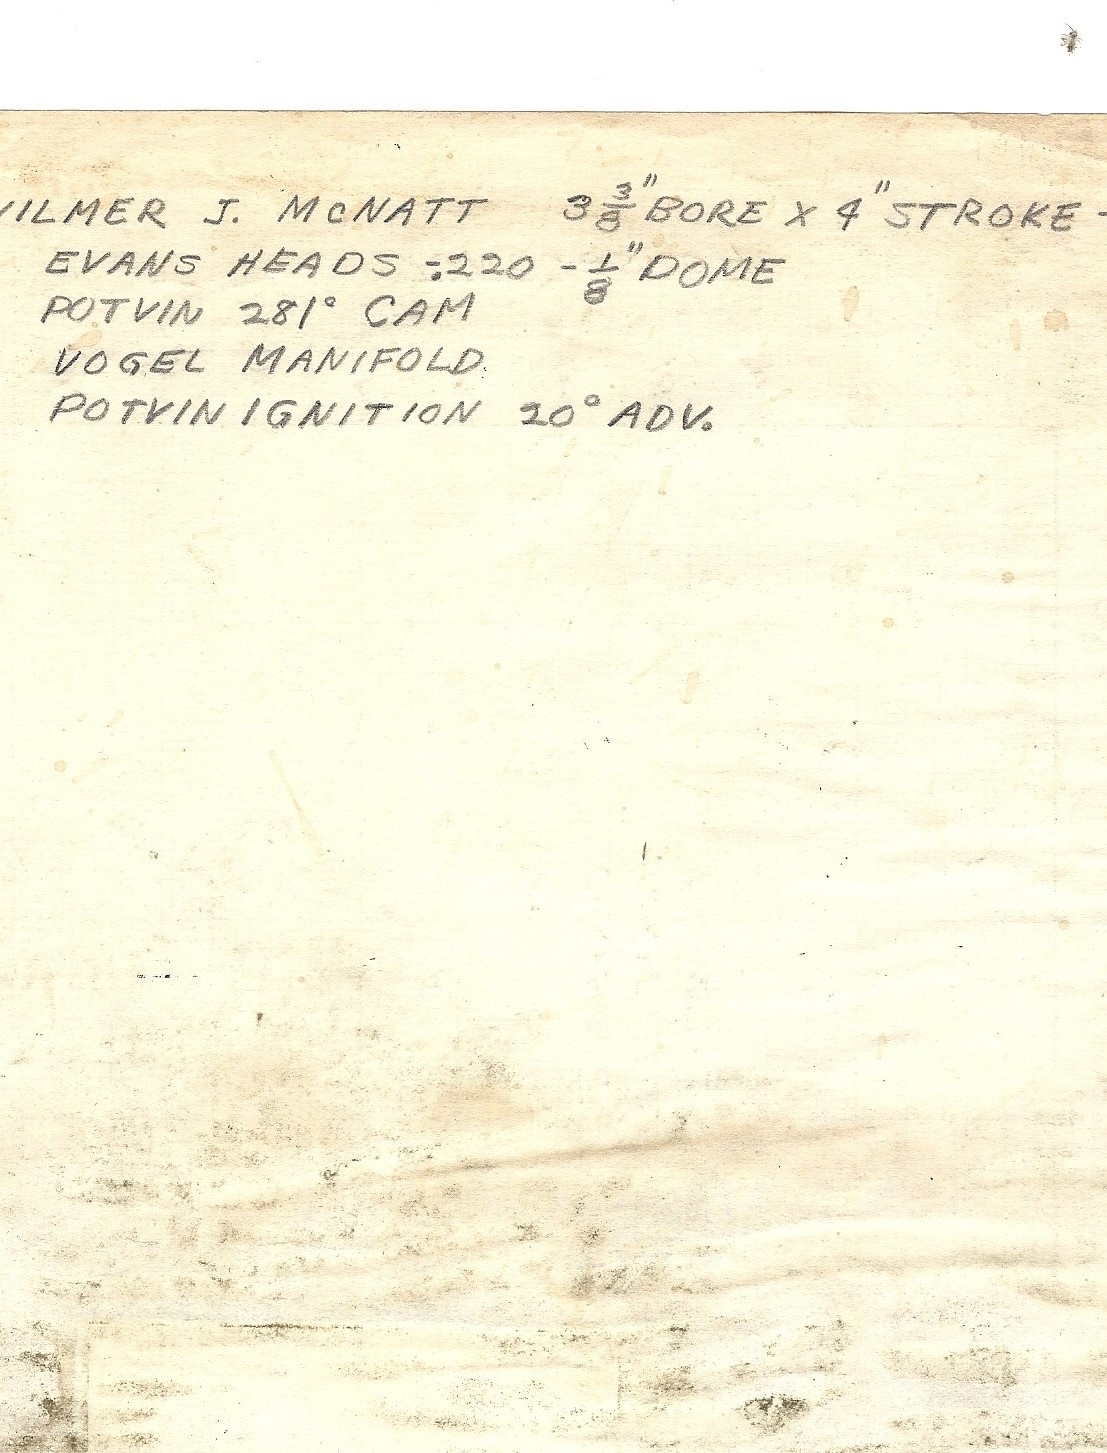 WILMER J. McNATT 3 3/8" BORE X 4" STROKE -
EVANS HEADS - .220 - 1/8" DOME
POTVIN 281° CAM
VOGEL MANIFOLD.
POTVIN IGNITION 20° ADV.